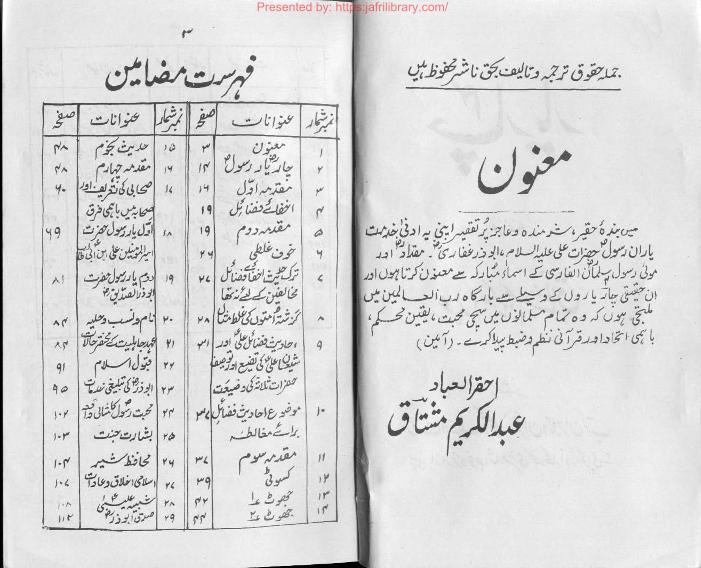 Presented by: https:jafrilibrary.com/
جملہ حقوق ترجمہ و تالیف بحق ناشر محفوظ ہیں
معنون
میں بندہ حقیر، شرمندہ و عاجز پُر تقصیر اپنی یہ ادنیٰ خدمت
یاران رسولؐ حضرات علی علیہ السلام، ابوذر غفاریؓ، مقدادؓ اور
مولیٰ رسول سلمان الفارسی کے اسماء مبارکہ سے معنون کرتا ہوں اور
ان حقیقی چار یاروں کے وسیلے سے بارگاہ رب العالمین میں
ملتجی ہوں کہ وہ تمام مسلمانوں میں سچی محبت، یقین محکم،
باہمی اتحاد اور قرآنی نظم و ضبط پیدا کرے۔ (آمین)
احقر العباد
عبدالکریم مشتاق
۳
فہرست مضامین
نمبر شمار عنوانات صفحہ نمبر شمار عنوانات صفحہ
۱ معنون ۳ ۱۵ حدیث نجوم ۴۸
۲ چار یار رسولؐ ۱۴ ۱۶ مقدمہ چہارم ۴۸
۳ مقدمہ اوّل ۱۶ ۱۷ صحابی کی تعریف اور ۶۰
۴ اخفائے فضائل ۱۹ صحابہ میں باہمی فرق
۵ مقدمہ دوم ۱۹ ۱۸ اوّل یار رسول حضرت ۶۹
۶ خوف غلطی ۲۶ امیر المومنین علی ابن ابی طالب
۷ ترک حدیث اخفائے فضائل ۲۷ ۱۹ دوم یار رسول حضرت ۸۱
مخالفین کے لئے نہ تھا ابوذر الصدیق
۸ گزشتہ امتوں کی غلط مثال ۲۸ ۲۰ نام و نسب و حلیہ ۸۴
۹ احادیث فضائل علیؑ اور ۳۱ ۲۱ عہد جاہلیت کے مختصر حالات ۸۴
شیعان علی کی تضیع اور توصیف ۲۲ قبول اسلام ۹۱
حضرات ثلاثہ کی وضعیت ۲۳ ابوذرؓ کی تبلیغی خدمات ۹۵
۱۰ موضوع احادیث فضائل ۳۷ ۲۴ محبت رسول کا مثالی واقعہ ۱۰۲
برائے مغالطہ ۲۵ بشارت جنت ۱۰۳
۱۱ مقدمہ سوم ۳۷ ۲۶ محافظ شیر ۱۰۴
۱۲ کسوٹی ۳۹ ۲۷ اسلامی اخلاق و عادات ۱۰۷
۱۳ جھوٹ ۱ ۴۲ ۲۸ شبیہ عیسیٰؑ ۱۰۸
۱۴ جھوٹ ۲ ۴۴ ۲۹ صدق ابوذرؓ ۱۱۲